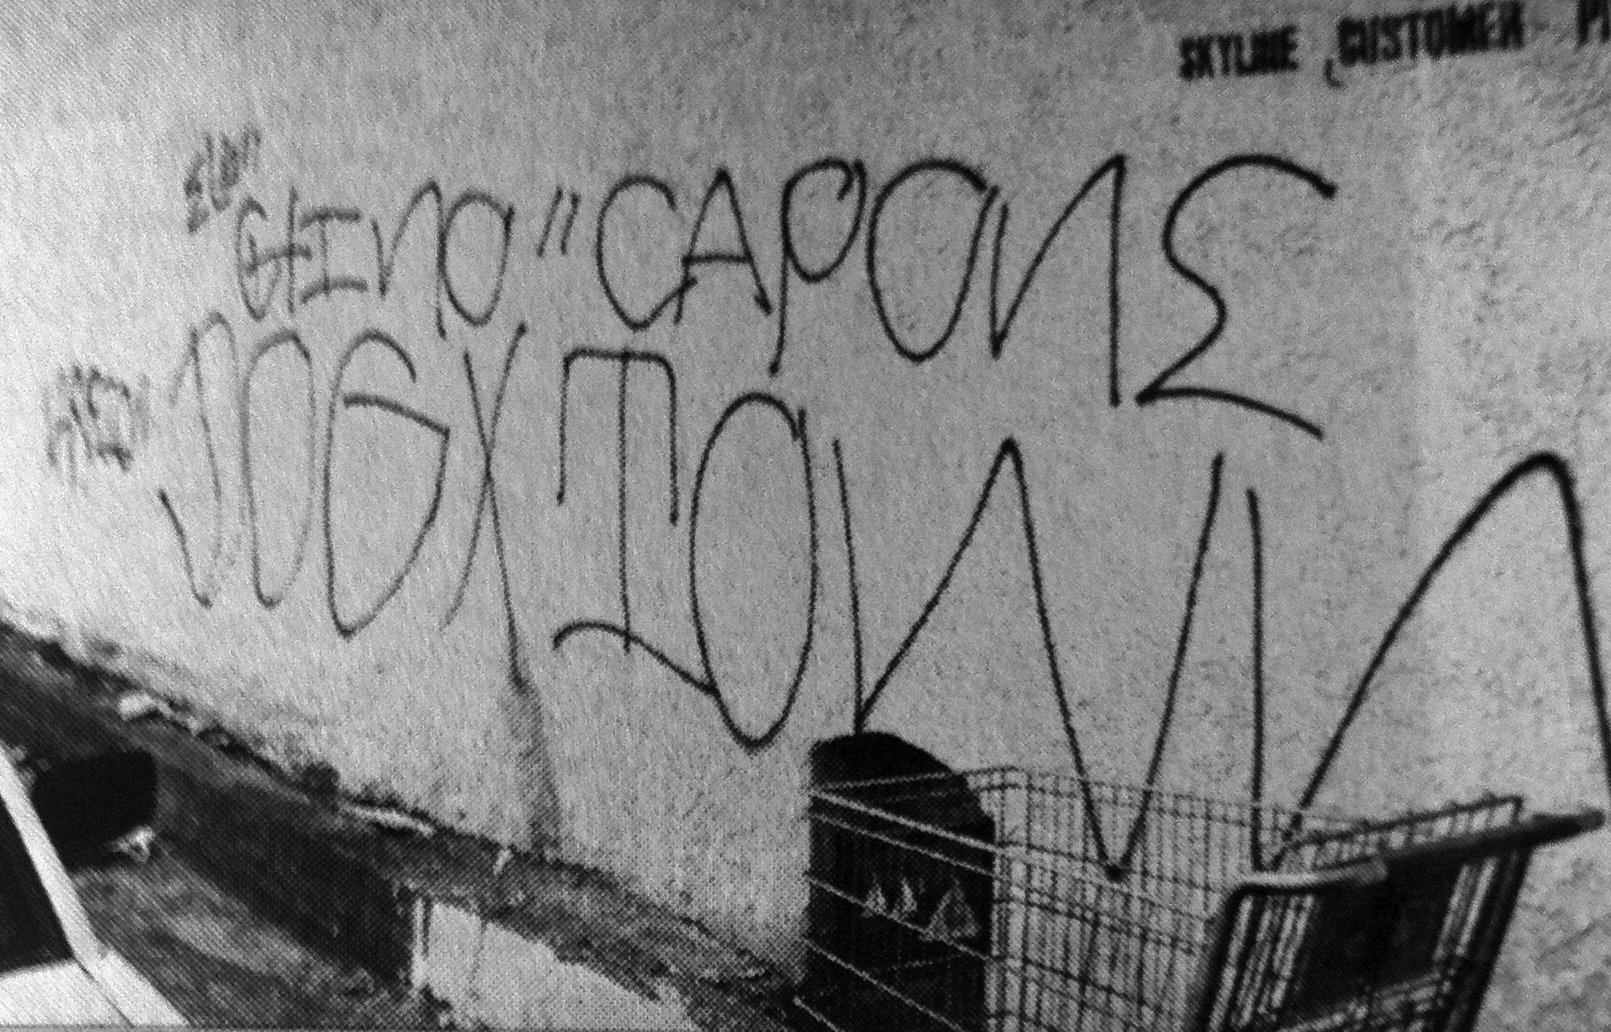 SKYLINE CUSTOMER
GINO" CAPONE
DOGXTOWN